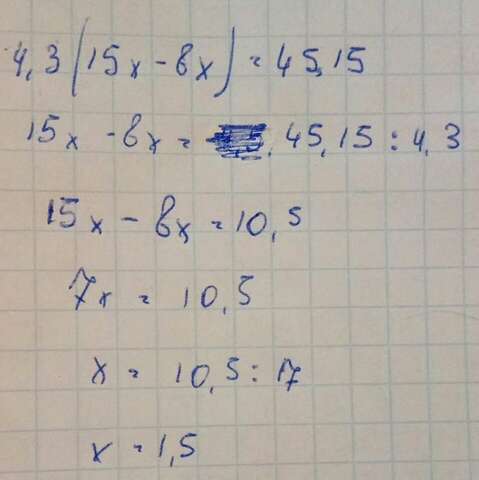 4,3(15x - 8x) = 45,15
15x - 8x = 45,15 : 4,3
15x - 8x = 10,5
7x = 10,5
x = 10,5 : 7
x = 1,5